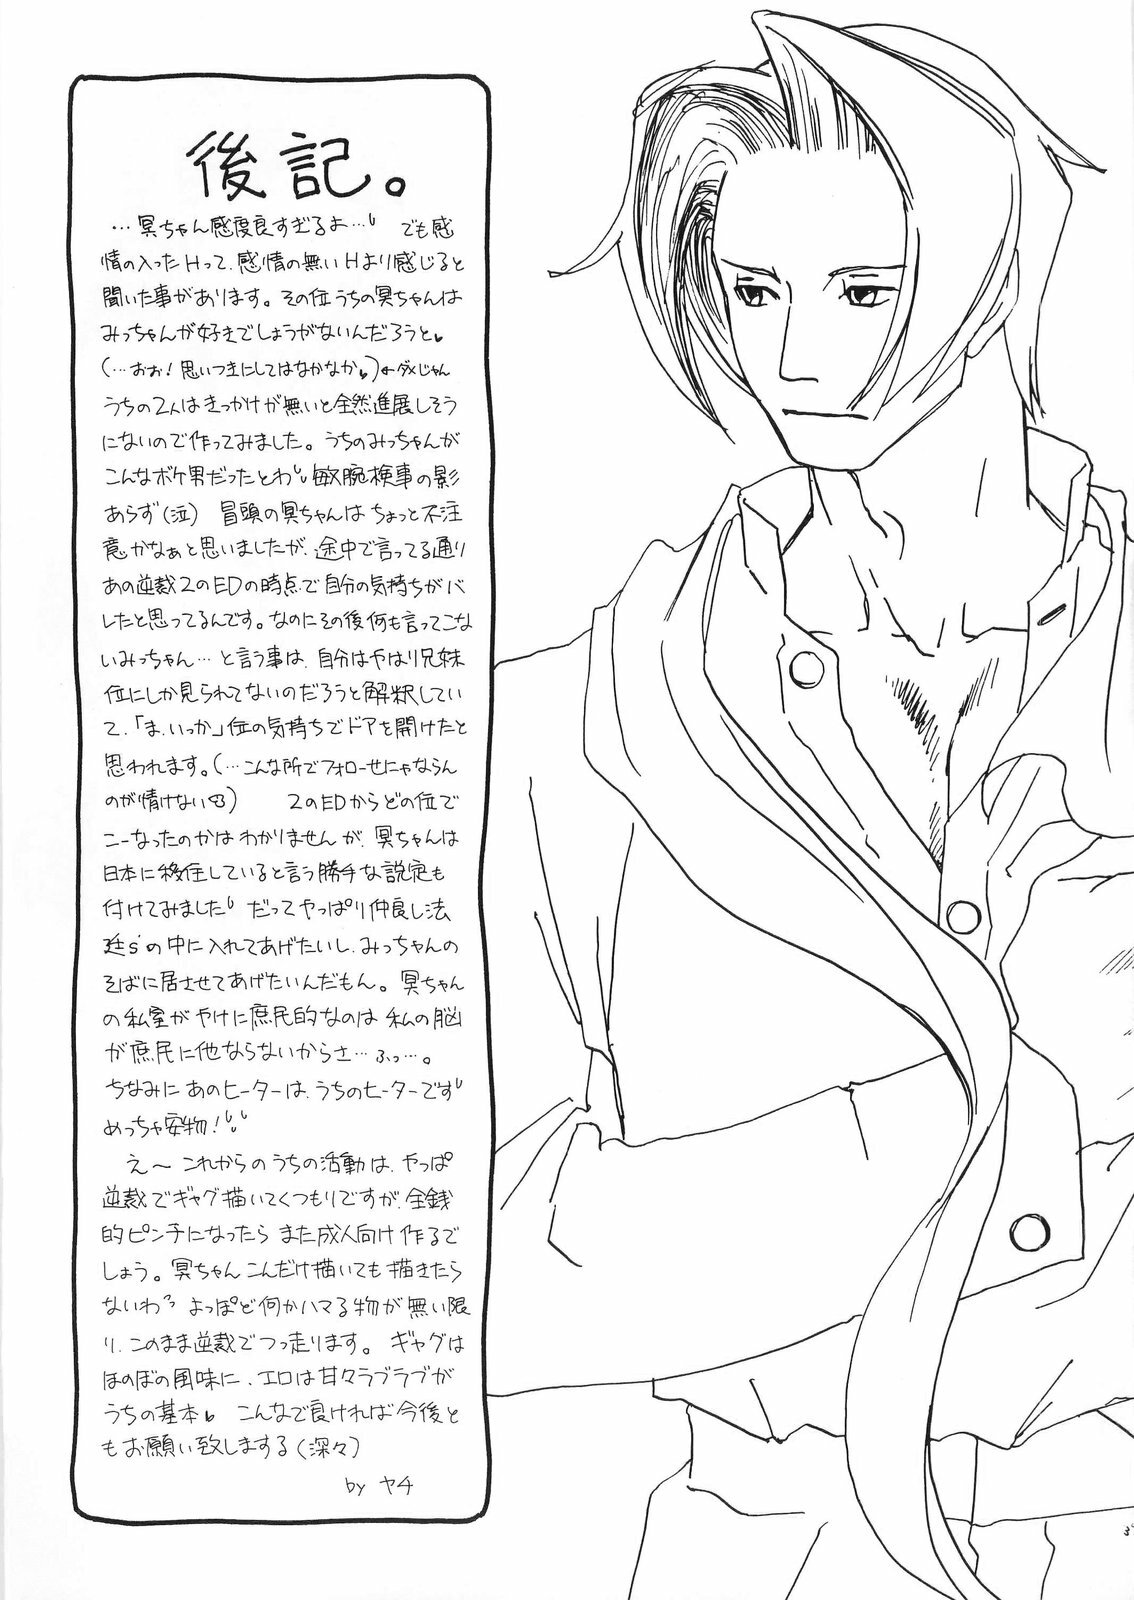 後記。
…冥ちゃん感度良すぎるよ… でも感
情の入ったHって、感情の無いHより感じると
聞いた事があります。その位うちの冥ちゃんは
みっちゃんが好きでしょうがないんだろうと♥
(…おお!思いつきにしてはなかなか♥)←ダメじゃん
うちの2人はきっかけが無いと全然進展しそう
にないので作ってみました。うちのみっちゃんが
こんなボケ男だったとわ 敏腕検事の影
あらず(泣) 冒頭の冥ちゃんはちょっと不注
意かなぁと思いましたが、途中で言ってる通り
あの逆裁2のEDの時点で自分の気持ちがバ
レたと思ってるんです。なのにその後何も言ってこな
いみっちゃん…と言う事は、自分はやはり兄妹
位にしか見られてないのだろうと解釈してい
て、「ま、いっか」位の気持ちでドアを開けたと
思われます。(…こんな所でフォローせにゃならん
のが情けない) 2のEDからどの位で
こーなったのかはわかりませんが、冥ちゃんは
日本に移住していると言う勝手な設定も
付けてみました だってやっぱり仲良し法
廷s'の中に入れてあげたいし、みっちゃんの
そばに居させてあげたいんだもん。冥ちゃん
の私室がやけに庶民的なのは私の脳
が庶民に他ならないからさ…ふっ…。
ちなみにあのヒーターは、うちのヒーターです
めっちゃ安物!
え〜これからのうちの活動は、やっぱ
逆裁でギャグ描いてくつもりですが、金銭
的ピンチになったらまた成人向け作るで
しょう。冥ちゃんこんだけ描いても描きたら
ないわ よっぽど何かハマる物が無い限
り、このまま逆裁でつっ走ります。ギャグは
ほのぼの風味に、エロは甘々ラブラブが
うちの基本♥ こんなで良ければ今後と
もお願い致しまする(深々)
by ヤチ